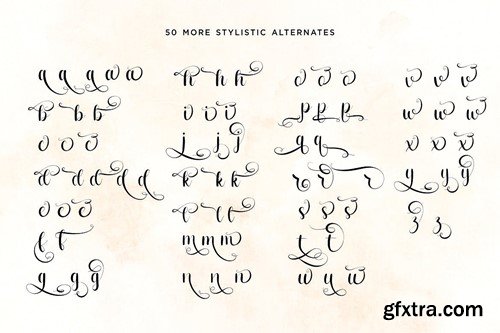 50 MORE STYLISTIC ALTERNATES
a a a a a
b b b
c c c
d d d d d
e e e
f f
g g g
h h h
i i i
j j j
k k k
l l l
m m m
n n n
o o o
p p p
q q
r r r
s s s
t t
u u u
v v v
w w w
x x x
y y y
z z
gfxtra.com